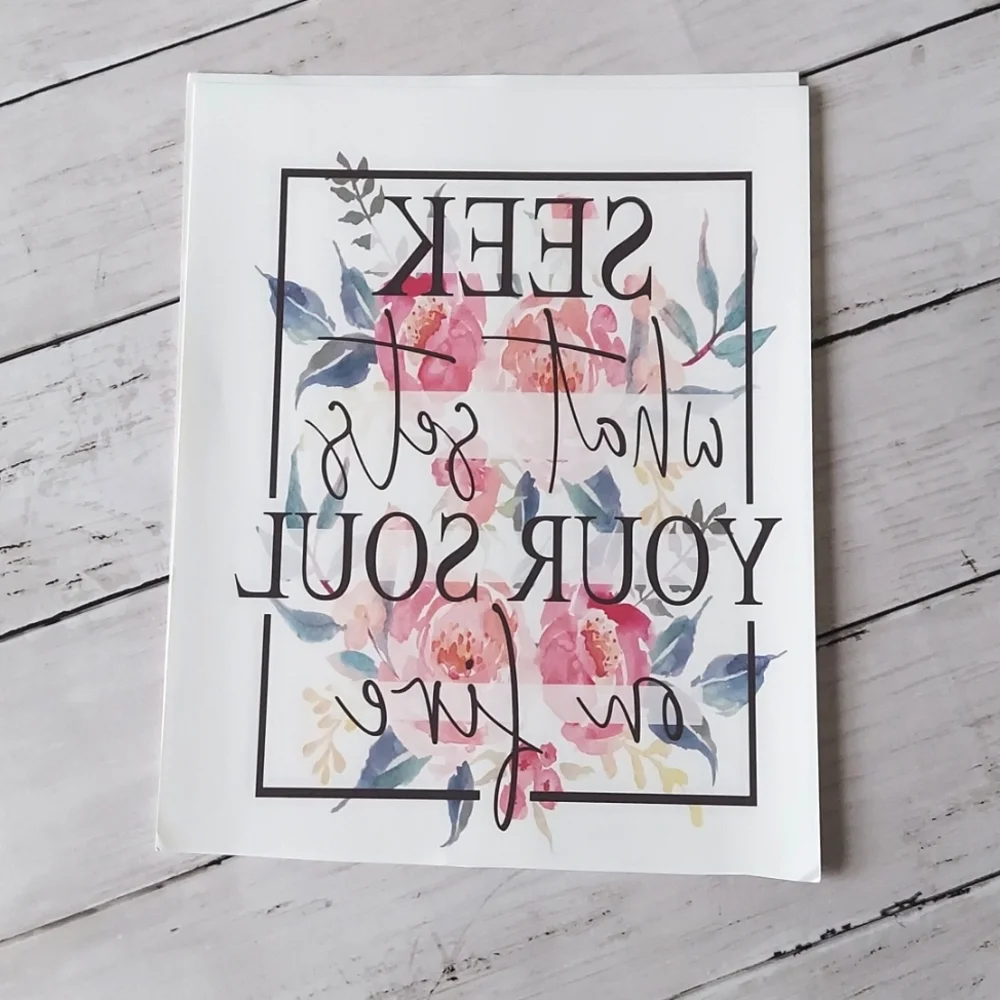 SEEK
what sets
YOUR SOUL
on fire